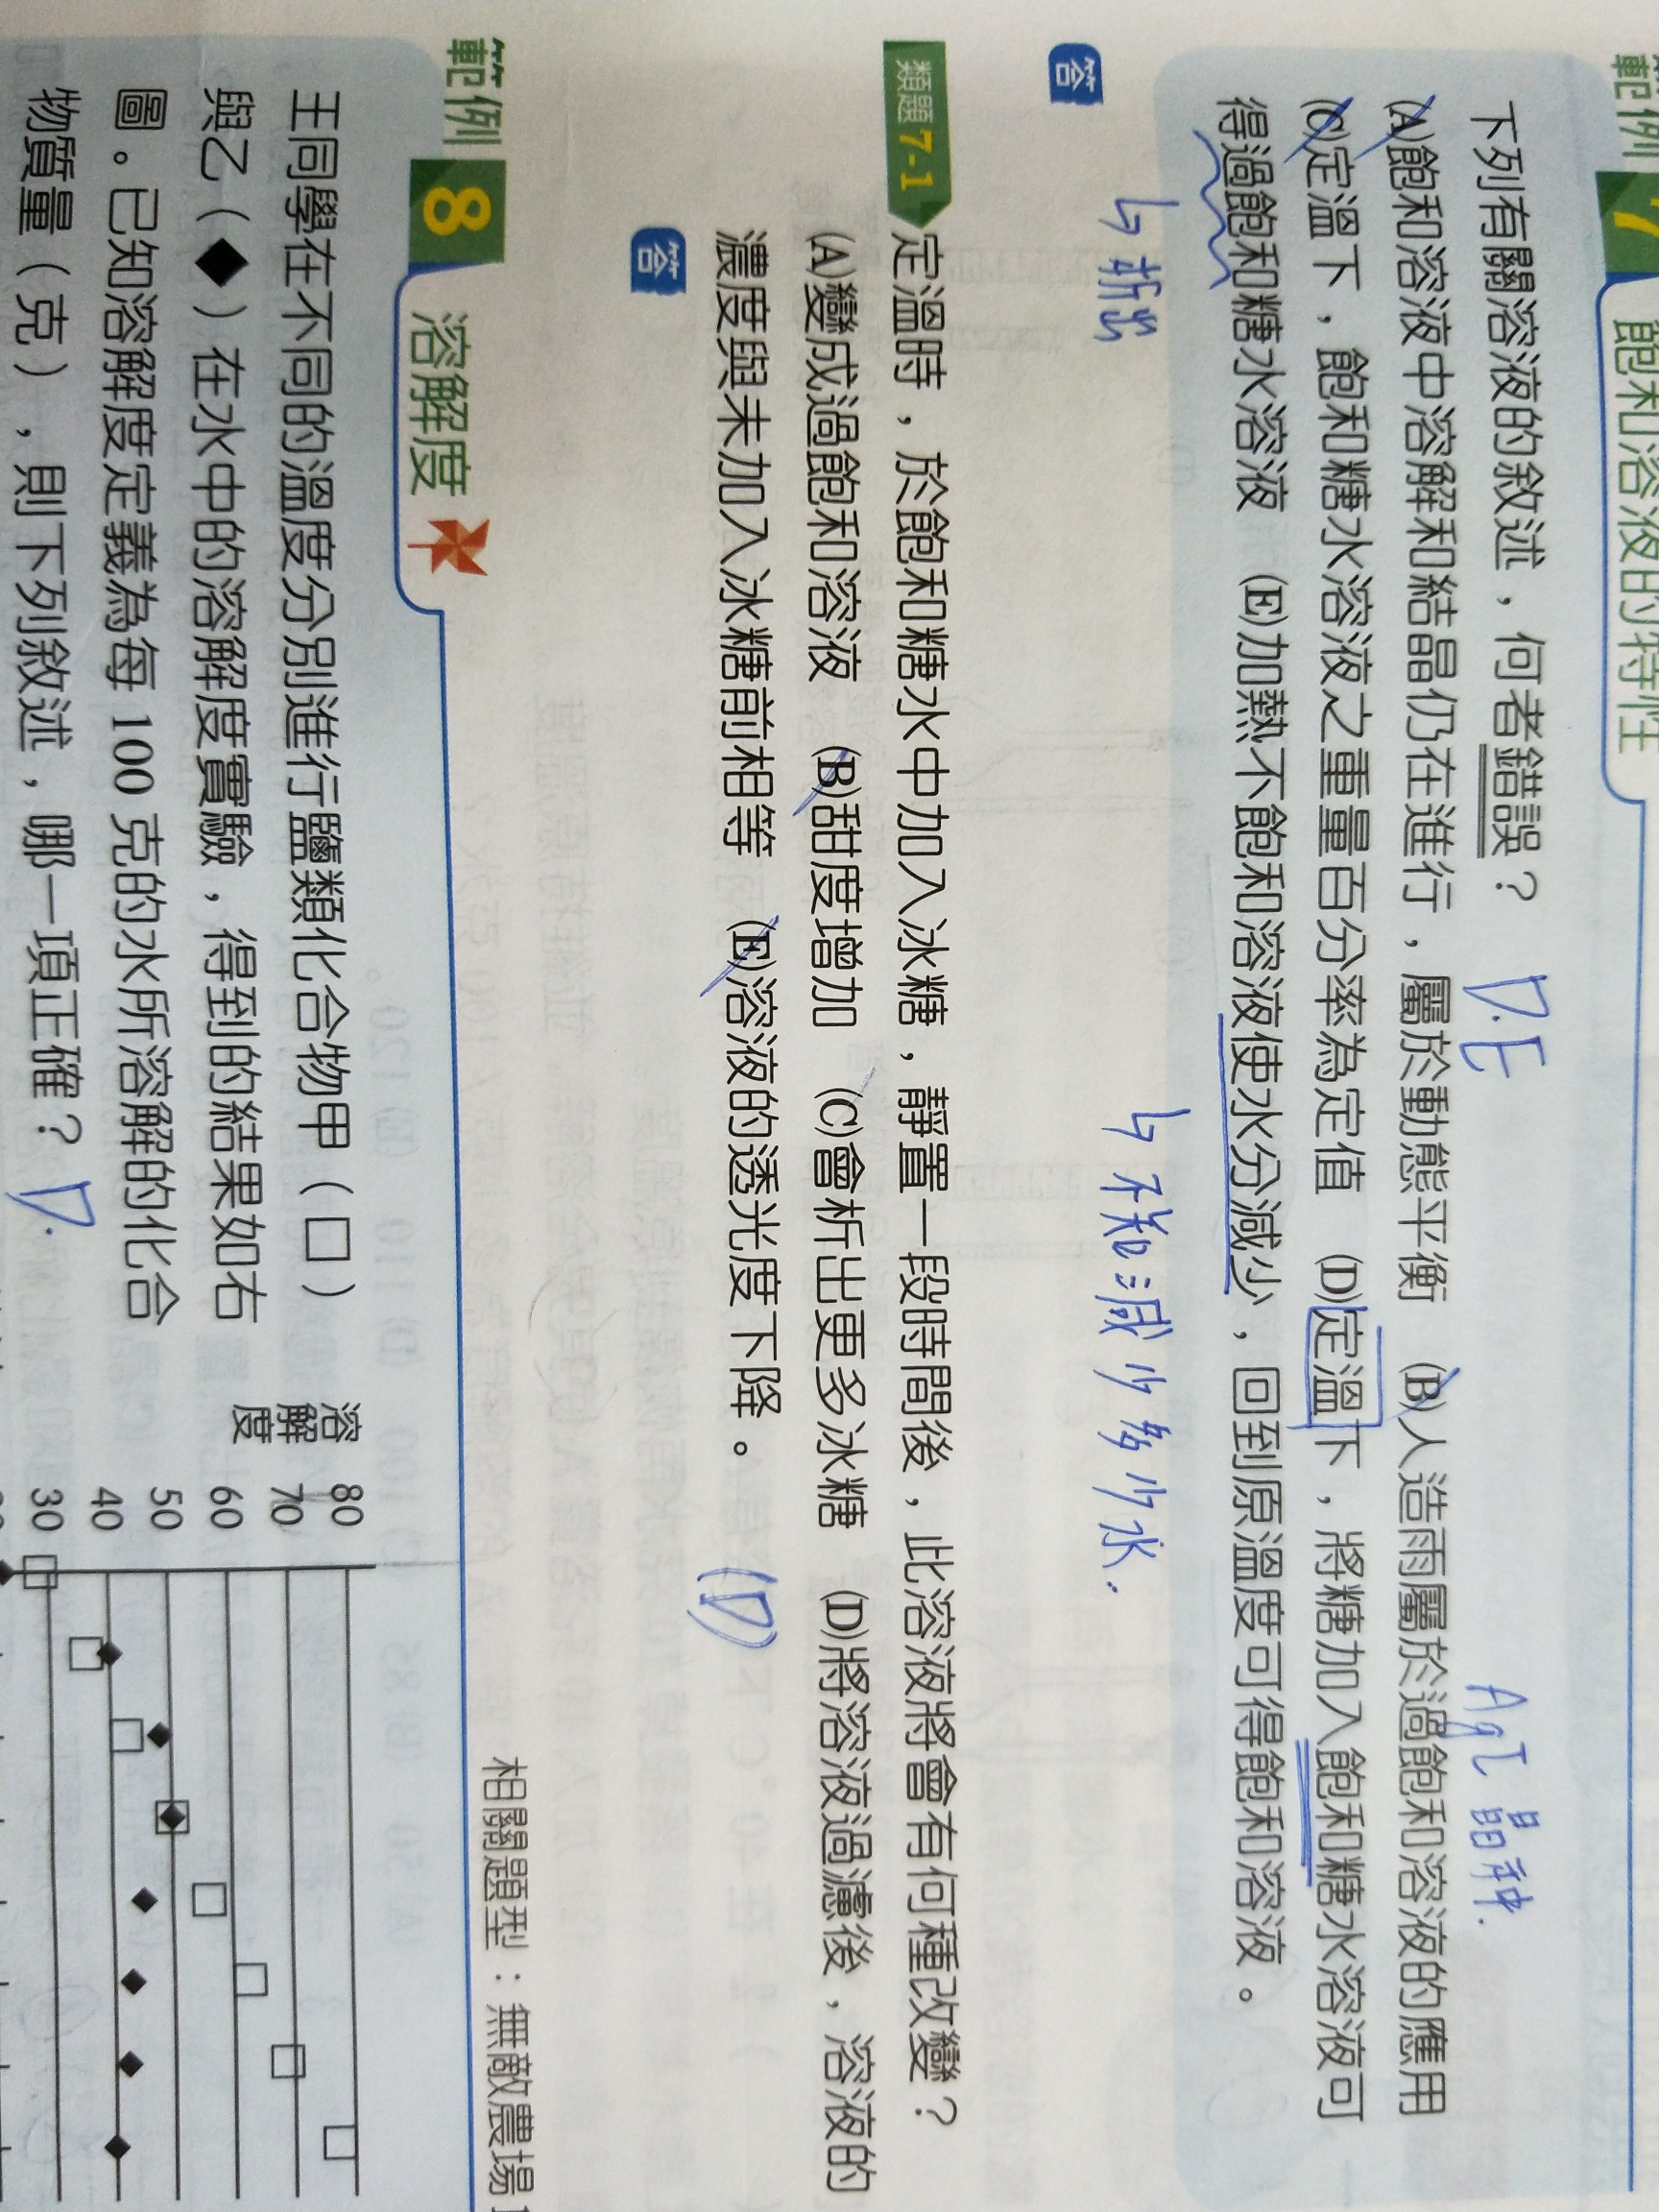 範例 7 飽和溶液的特性
下列有關溶液的敘述，何者錯誤？ D.E
AgI 晶种.
(A)飽和溶液中溶解和結晶仍在進行，屬於動態平衡 (B)人造雨屬於過飽和溶液的應用
(C)定溫下，飽和糖水溶液之重量百分率為定值 (D)定溫下，將糖加入飽和糖水溶液可
得過飽和糖水溶液 (E)加熱不飽和溶液使水分減少，回到原溫度可得飽和溶液。
答
↳ 析出
↳ 不知減少多少水.
類題7-1 定溫時，於飽和糖水中加入冰糖，靜置一段時間後，此溶液將會有何種改變？
(A)變成過飽和溶液 (B)甜度增加 (C)會析出更多冰糖 (D)將溶液過濾後，溶液的
濃度與未加入冰糖前相等 (E)溶液的透光度下降。 (D)
答
範例 8 溶解度
相關題型：無敵農場
王同學在不同的溫度分別進行鹽類化合物甲（□）
與乙（◆）在水中的溶解度實驗，得到的結果如右
圖。已知溶解度定義為每 100 克的水所溶解的化合
物質量（克），則下列敘述，哪一項正確？ D.
溶解度
80
70
60
50
40
30